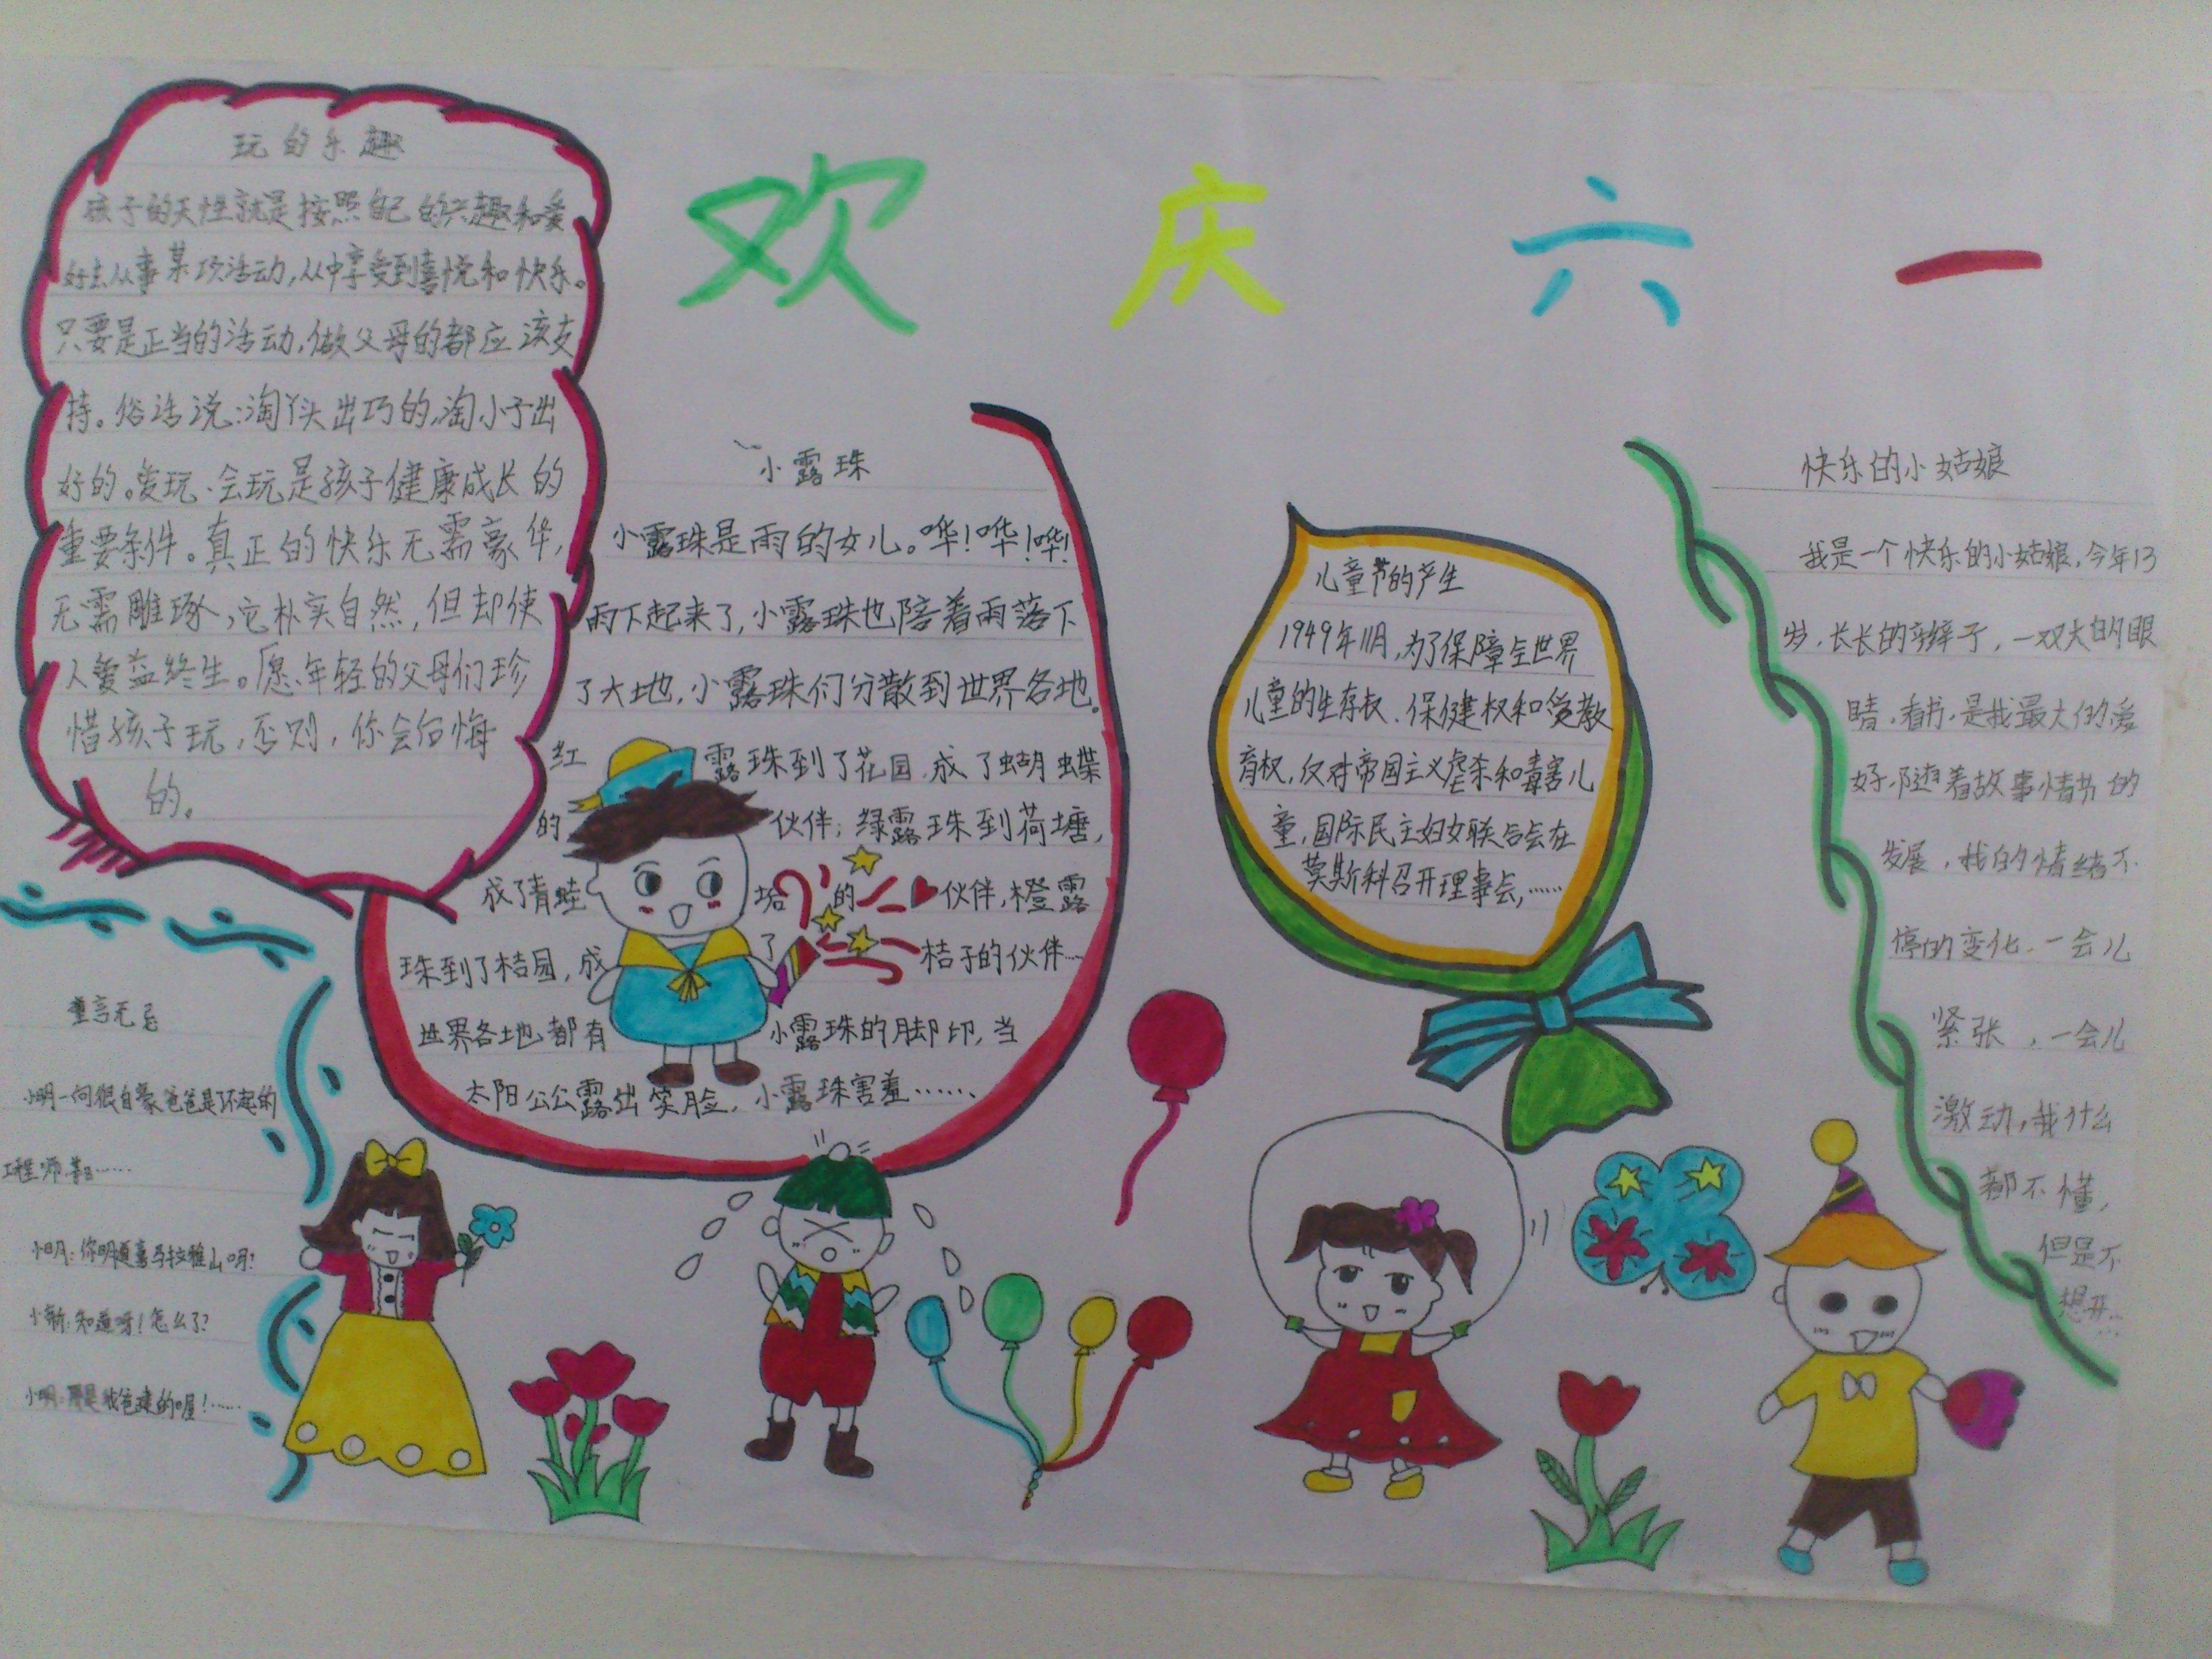 欢庆六一
玩的乐趣
孩子的天性就是按照自己的兴趣和爱
好去从事某项活动,从中享受到喜悦和快乐。
只要是正当的活动,做父母的都应该支
持。俗话说:淘丫头出巧的,淘小子出
好的。爱玩、会玩是孩子健康成长的
重要条件。真正的快乐无需豪华,
无需雕琢,它朴实自然,但却使
人受益终生。愿年轻的父母们珍
惜孩子玩,否则,你会后悔
的。
小露珠
小露珠是雨的女儿。哗!哗!哗!
雨下起来了,小露珠也陪着雨落下
了大地,小露珠们分散到世界各地。
红露珠到了花园,成了蝴蝶
的伙伴;绿露珠到荷塘,
成了青蛙的伙伴,橙露
珠到了桔园,成了桔子的伙伴……
世界各地都有小露珠的脚印,当
太阳公公露出笑脸,小露珠害羞……
儿童节的产生
1949年11月,为了保障全世界
儿童的生存权、保健权和受教
育权,反对帝国主义虐杀和毒害儿
童,国际民主妇女联合会在
莫斯科召开理事会,……
快乐的小姑娘
我是一个快乐的小姑娘,今年13
岁,长长的辫子,一双大的眼
睛,看书,是我最大的爱
好,随着故事情节的
发展,我的情绪不
停的变化,一会儿
紧张,一会儿
激动,我什么
都不懂,
但是不
想开…
童言无忌
小明一向很自豪爸爸是了不起的
工程师
小明:你知道喜马拉雅山吗?
小新:知道呀!怎么了?
小明:那是我爸建的喔!……